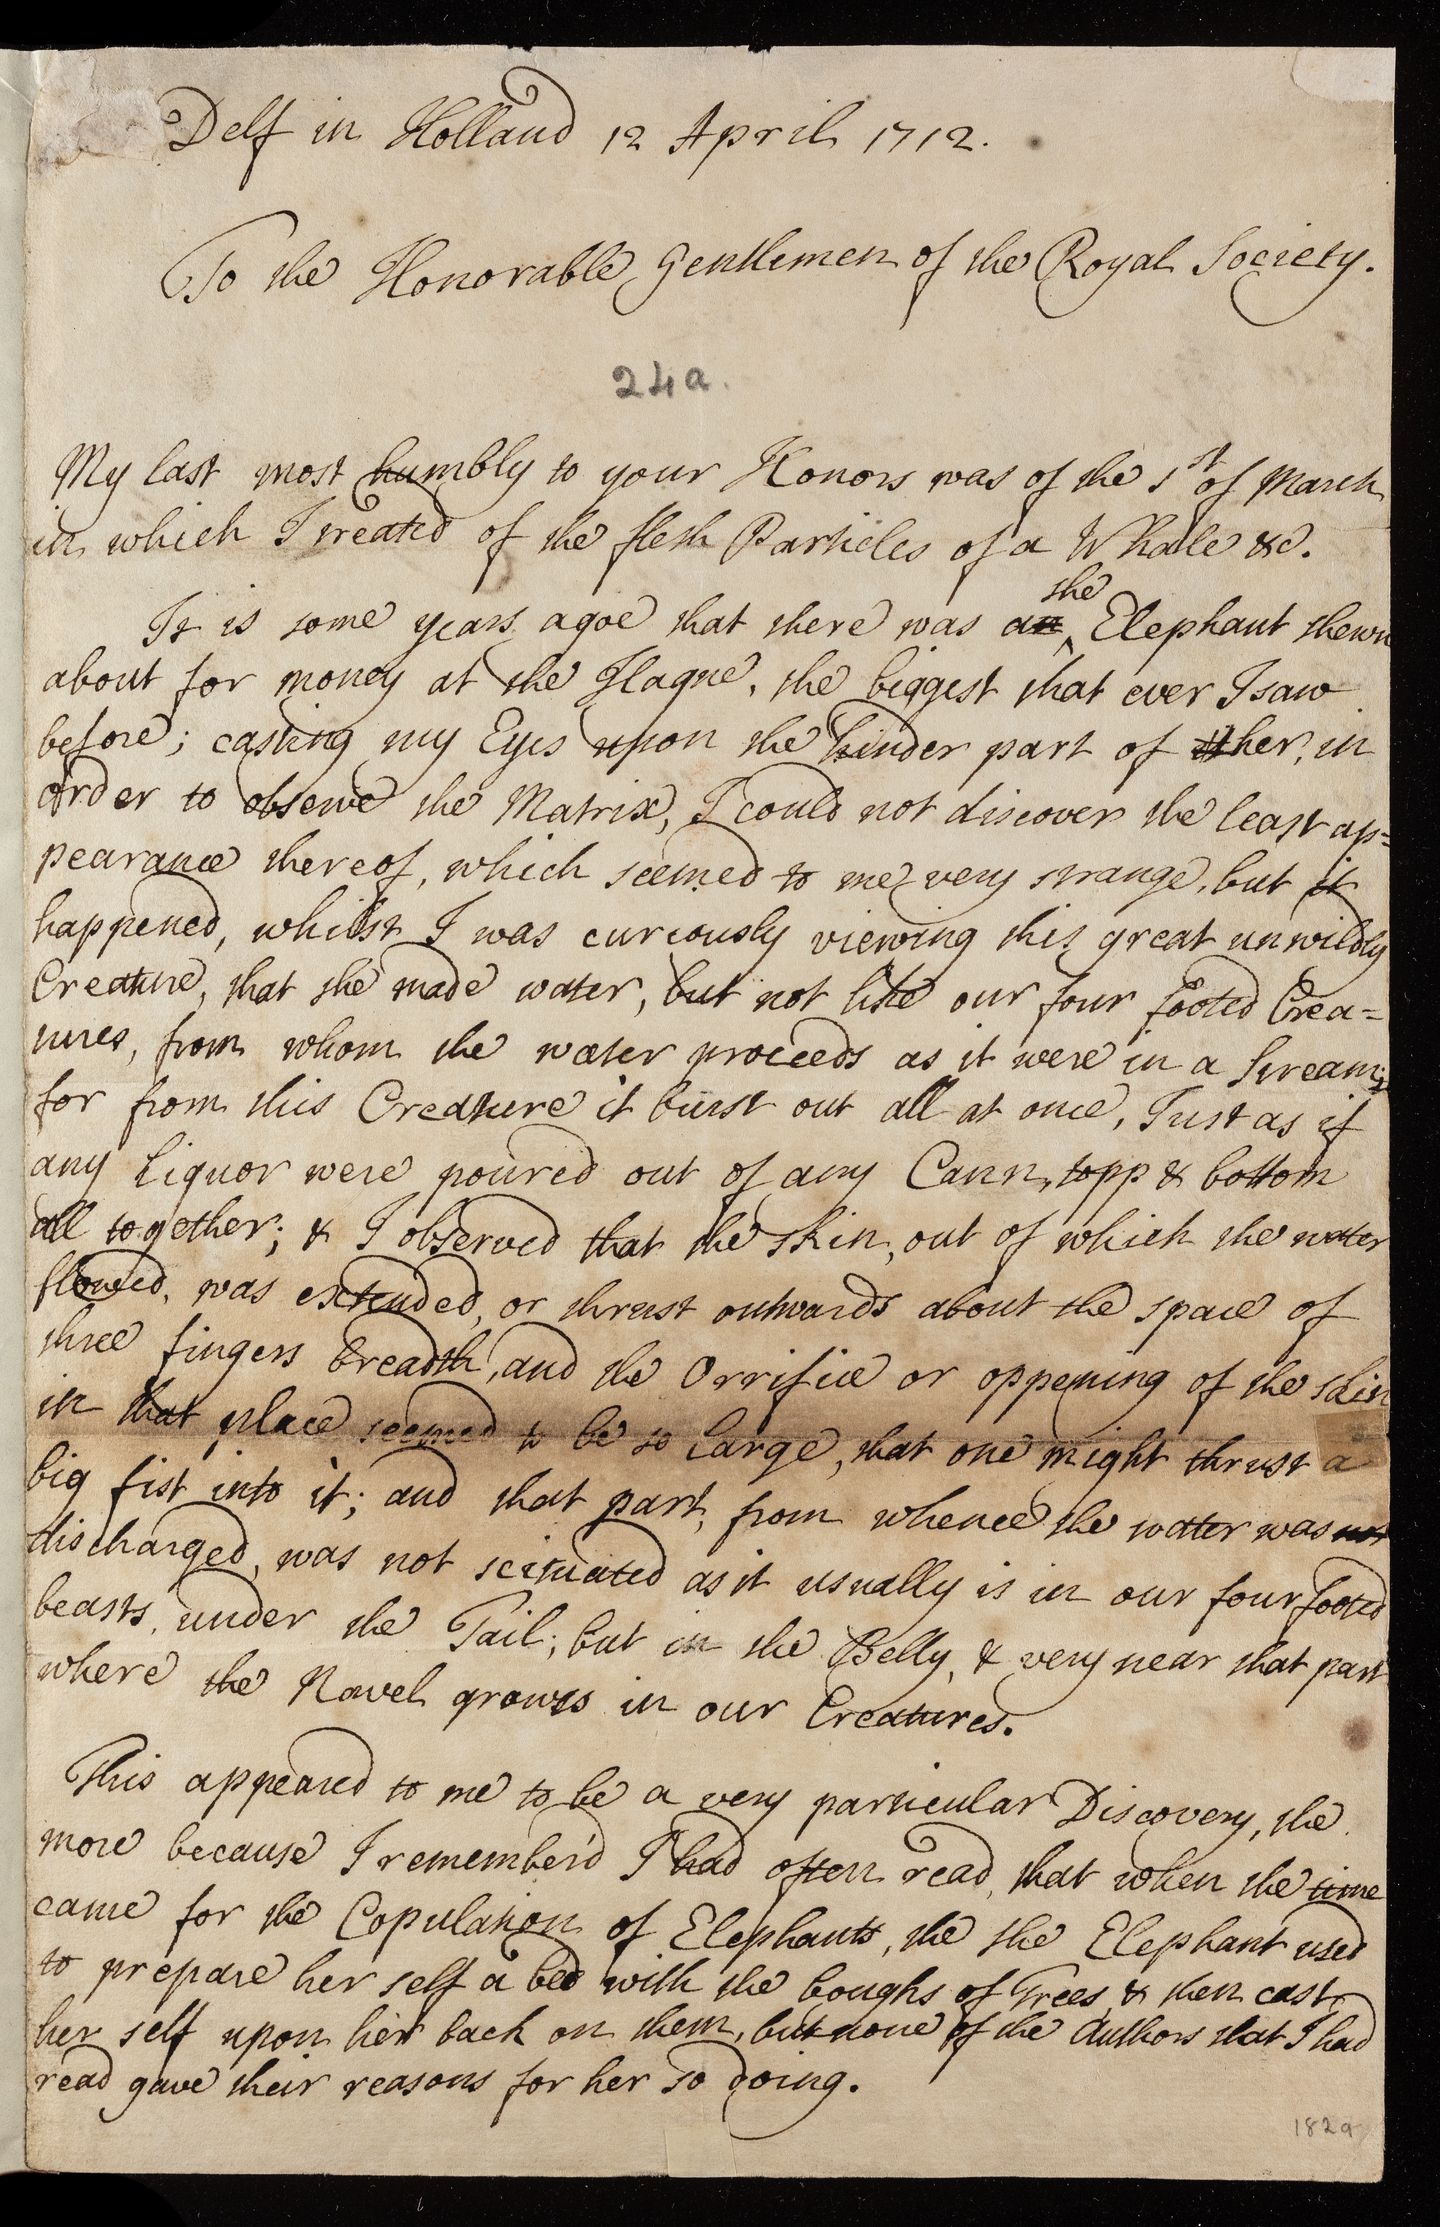 Delf in Holland 12 April 1712.
To the Honorable Gentlemen of the Royal Society.
24a.
My last most humbly to your Honors was of the 1st of March
in which I treated of the flesh Particles of a Whale &c.
It is some years agoe that there was an she Elephant shewn
about for money at the Hague, the biggest that ever I saw
before; casting my Eyes upon the hinder part of her, in
order to observe the Matrix, I could not discover the least ap=
pearance thereof, which seemed to me very strange, but it
happened, whilst I was curiously viewing this great unwildly
Creature, that she made water, but not like our four footed Crea=
tures, from whom the water proceeds as it were in a Stream;
for from this Creature it burst out all at once, Just as if
any Liquor were poured out of any Cann, topp & bottom
all together; & I observed that the skin, out of which the water
flowed, was extended, or thrust outwards about the space of
three fingers breadth, and the Orrifice or oppening of the skin
in that place seemed to be so large, that one might thrust a
big fist into it; and that part, from whence the water was not
discharged, was not scituated as it usually is in our four footed
beasts, under the Tail; but in the Belly, & very near that part
where the Navel grows in our Creatures.
This appeared to me to be a very particular Discovery, the
more because I remember'd I had often read, that when the time
came for the Copulation of Elephants, the she Elephant used
to prepare her self a bed with the boughs of Trees & then cast
her self upon her back on them, but none of the Authors that I had
read gave their reasons for her so doing.
182a